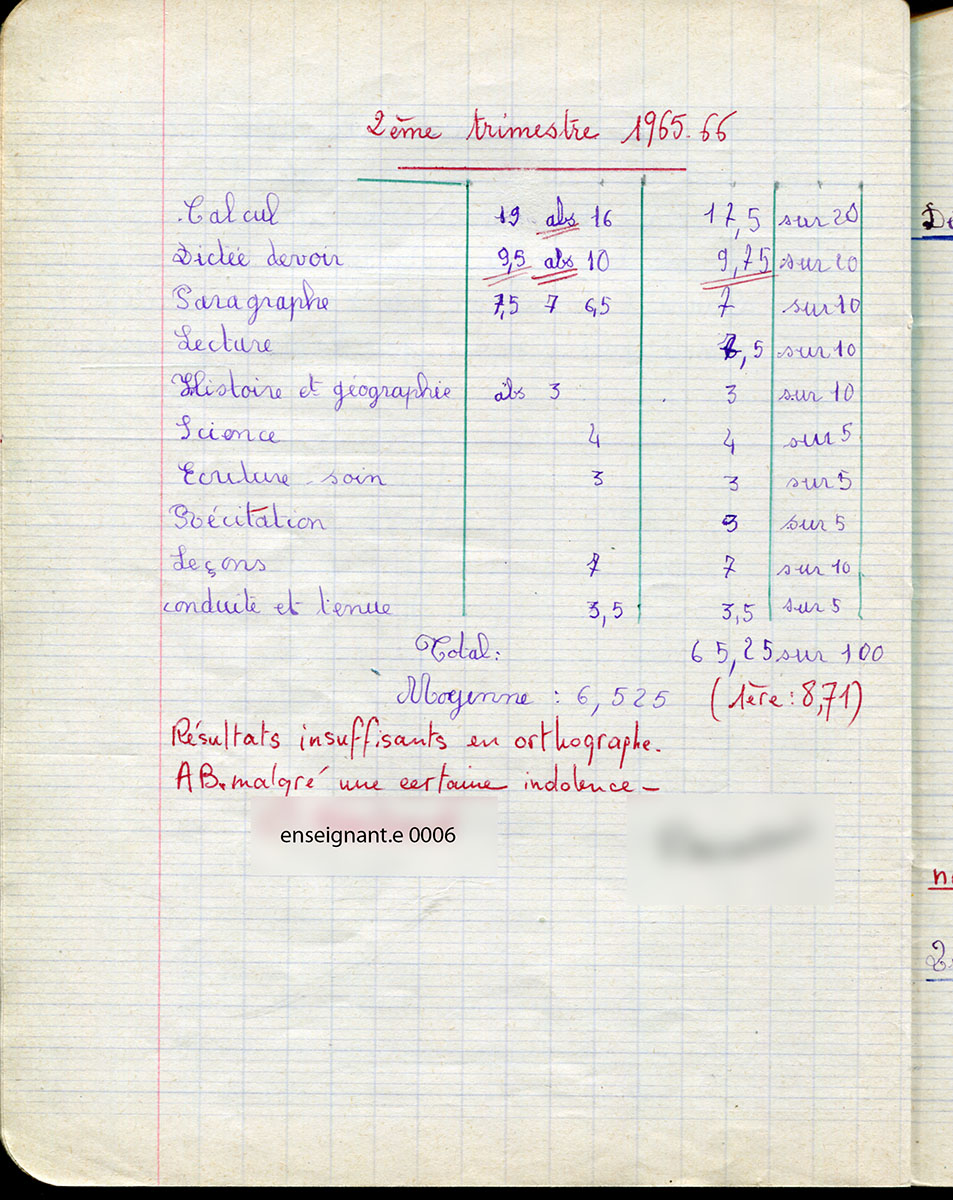 2ème trimestre 1965.66
Calcul 19 abs 16 17,5 sur 20
Dictée devoir 9,5 abs 10 9,75 sur 20
Paragraphe 7,5 7 6,5 7 sur 10
Lecture 7,5 sur 10
Histoire et géographie abs 3 3 sur 10
Science 4 4 sur 5
Ecriture - soin 3 3 sur 5
Récitation 3 sur 5
Leçons 7 7 sur 10
conduite et tenue 3,5 3,5 sur 5
Total: 65,25 sur 100
Moyenne : 6,525 (1ère : 8,71)
Résultats insuffisants en orthographe.
AB. malgré une certaine indolence -
enseignant.e 0006